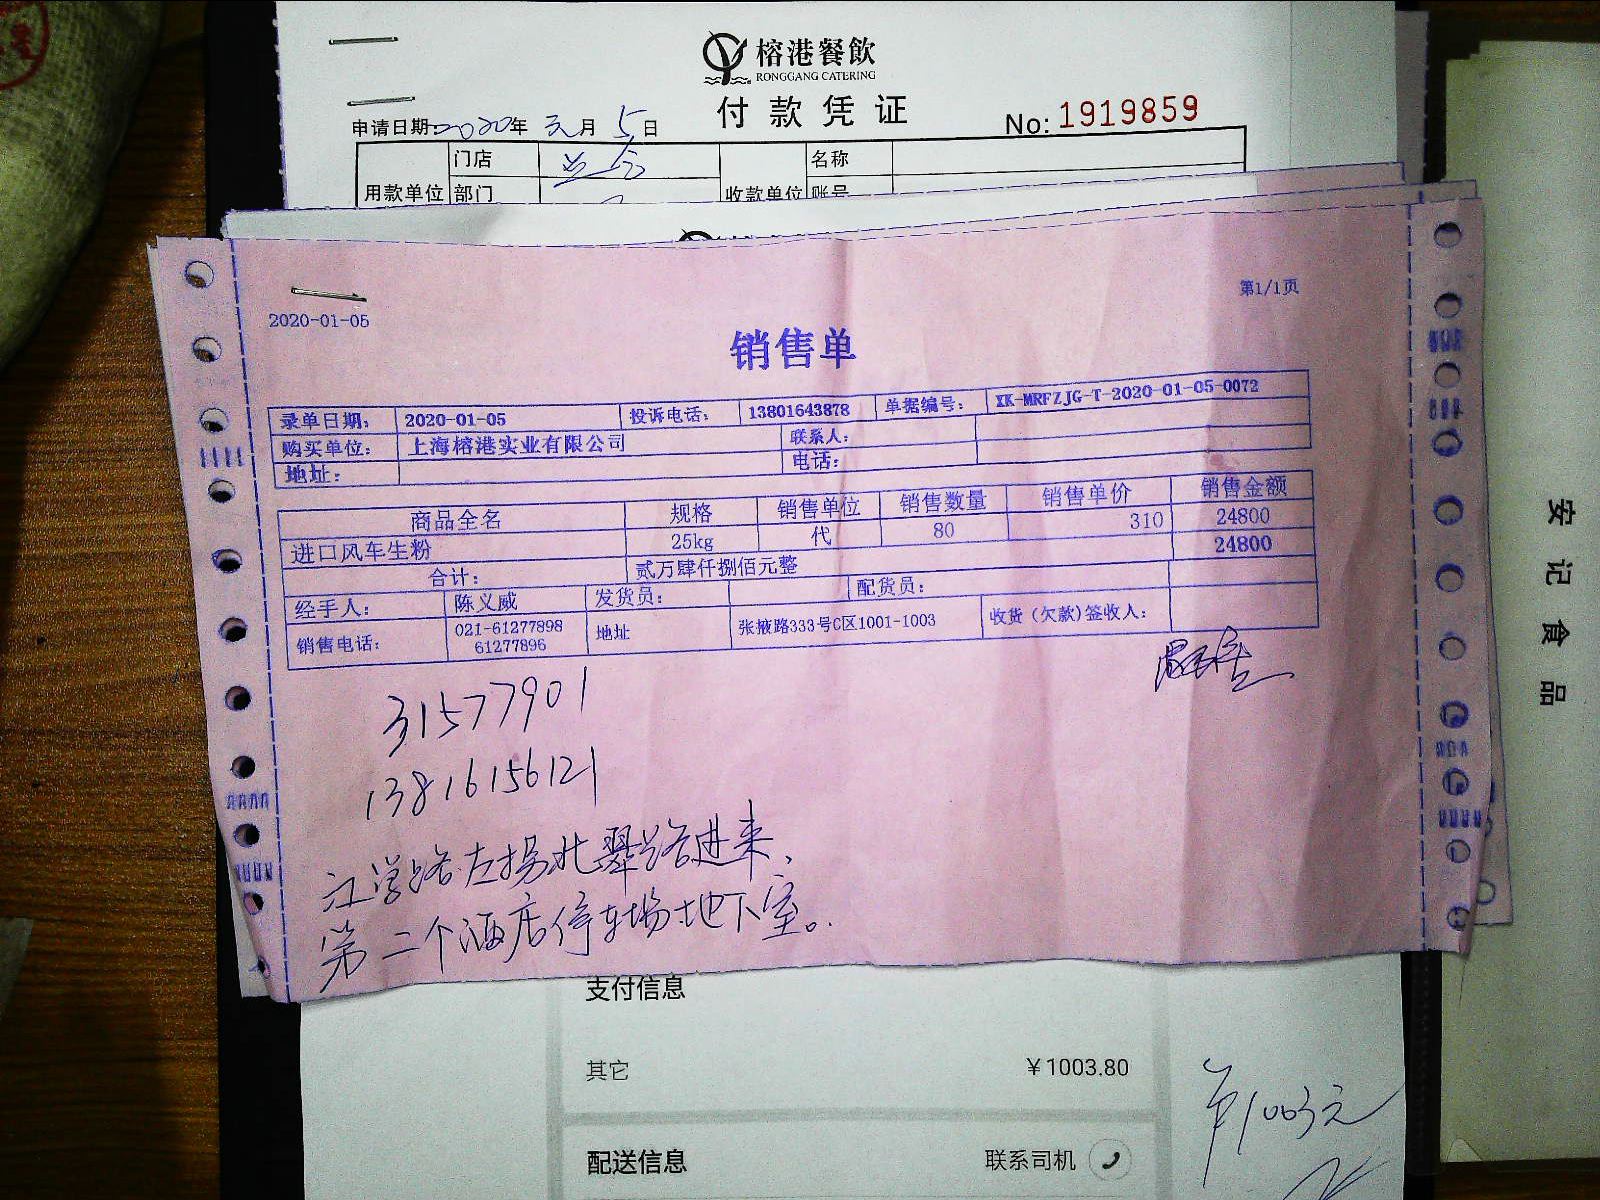 榕港餐飲
RONGGANG CATERING
付款凭证
No: 1919859
申请日期: 2020年 元月 5日
门店 名称
用款单位 部门 收款单位 账号
第1/1页
2020-01-05
销售单
录单日期: 2020-01-05 投诉电话: 13801643878 单据编号: XK-MRFZJG-T-2020-01-05-0072
购买单位: 上海榕港实业有限公司 联系人:
地址: 电话:
商品全名 规格 销售单位 销售数量 销售单价 销售金额
进口风车生粉 25kg 代 80 310 24800
合计: 贰万肆仟捌佰元整 24800
经手人: 陈义威 发货员: 配货员:
销售电话: 021-61277898 61277896 地址 张掖路333号C区1001-1003 收货(欠款)签收人:
31577901
13816156121
路左拐北翟路进来、
第二个酒店停车场地下室。
支付信息
其它 ¥1003.80
1003元
配送信息 联系司机
安记食品